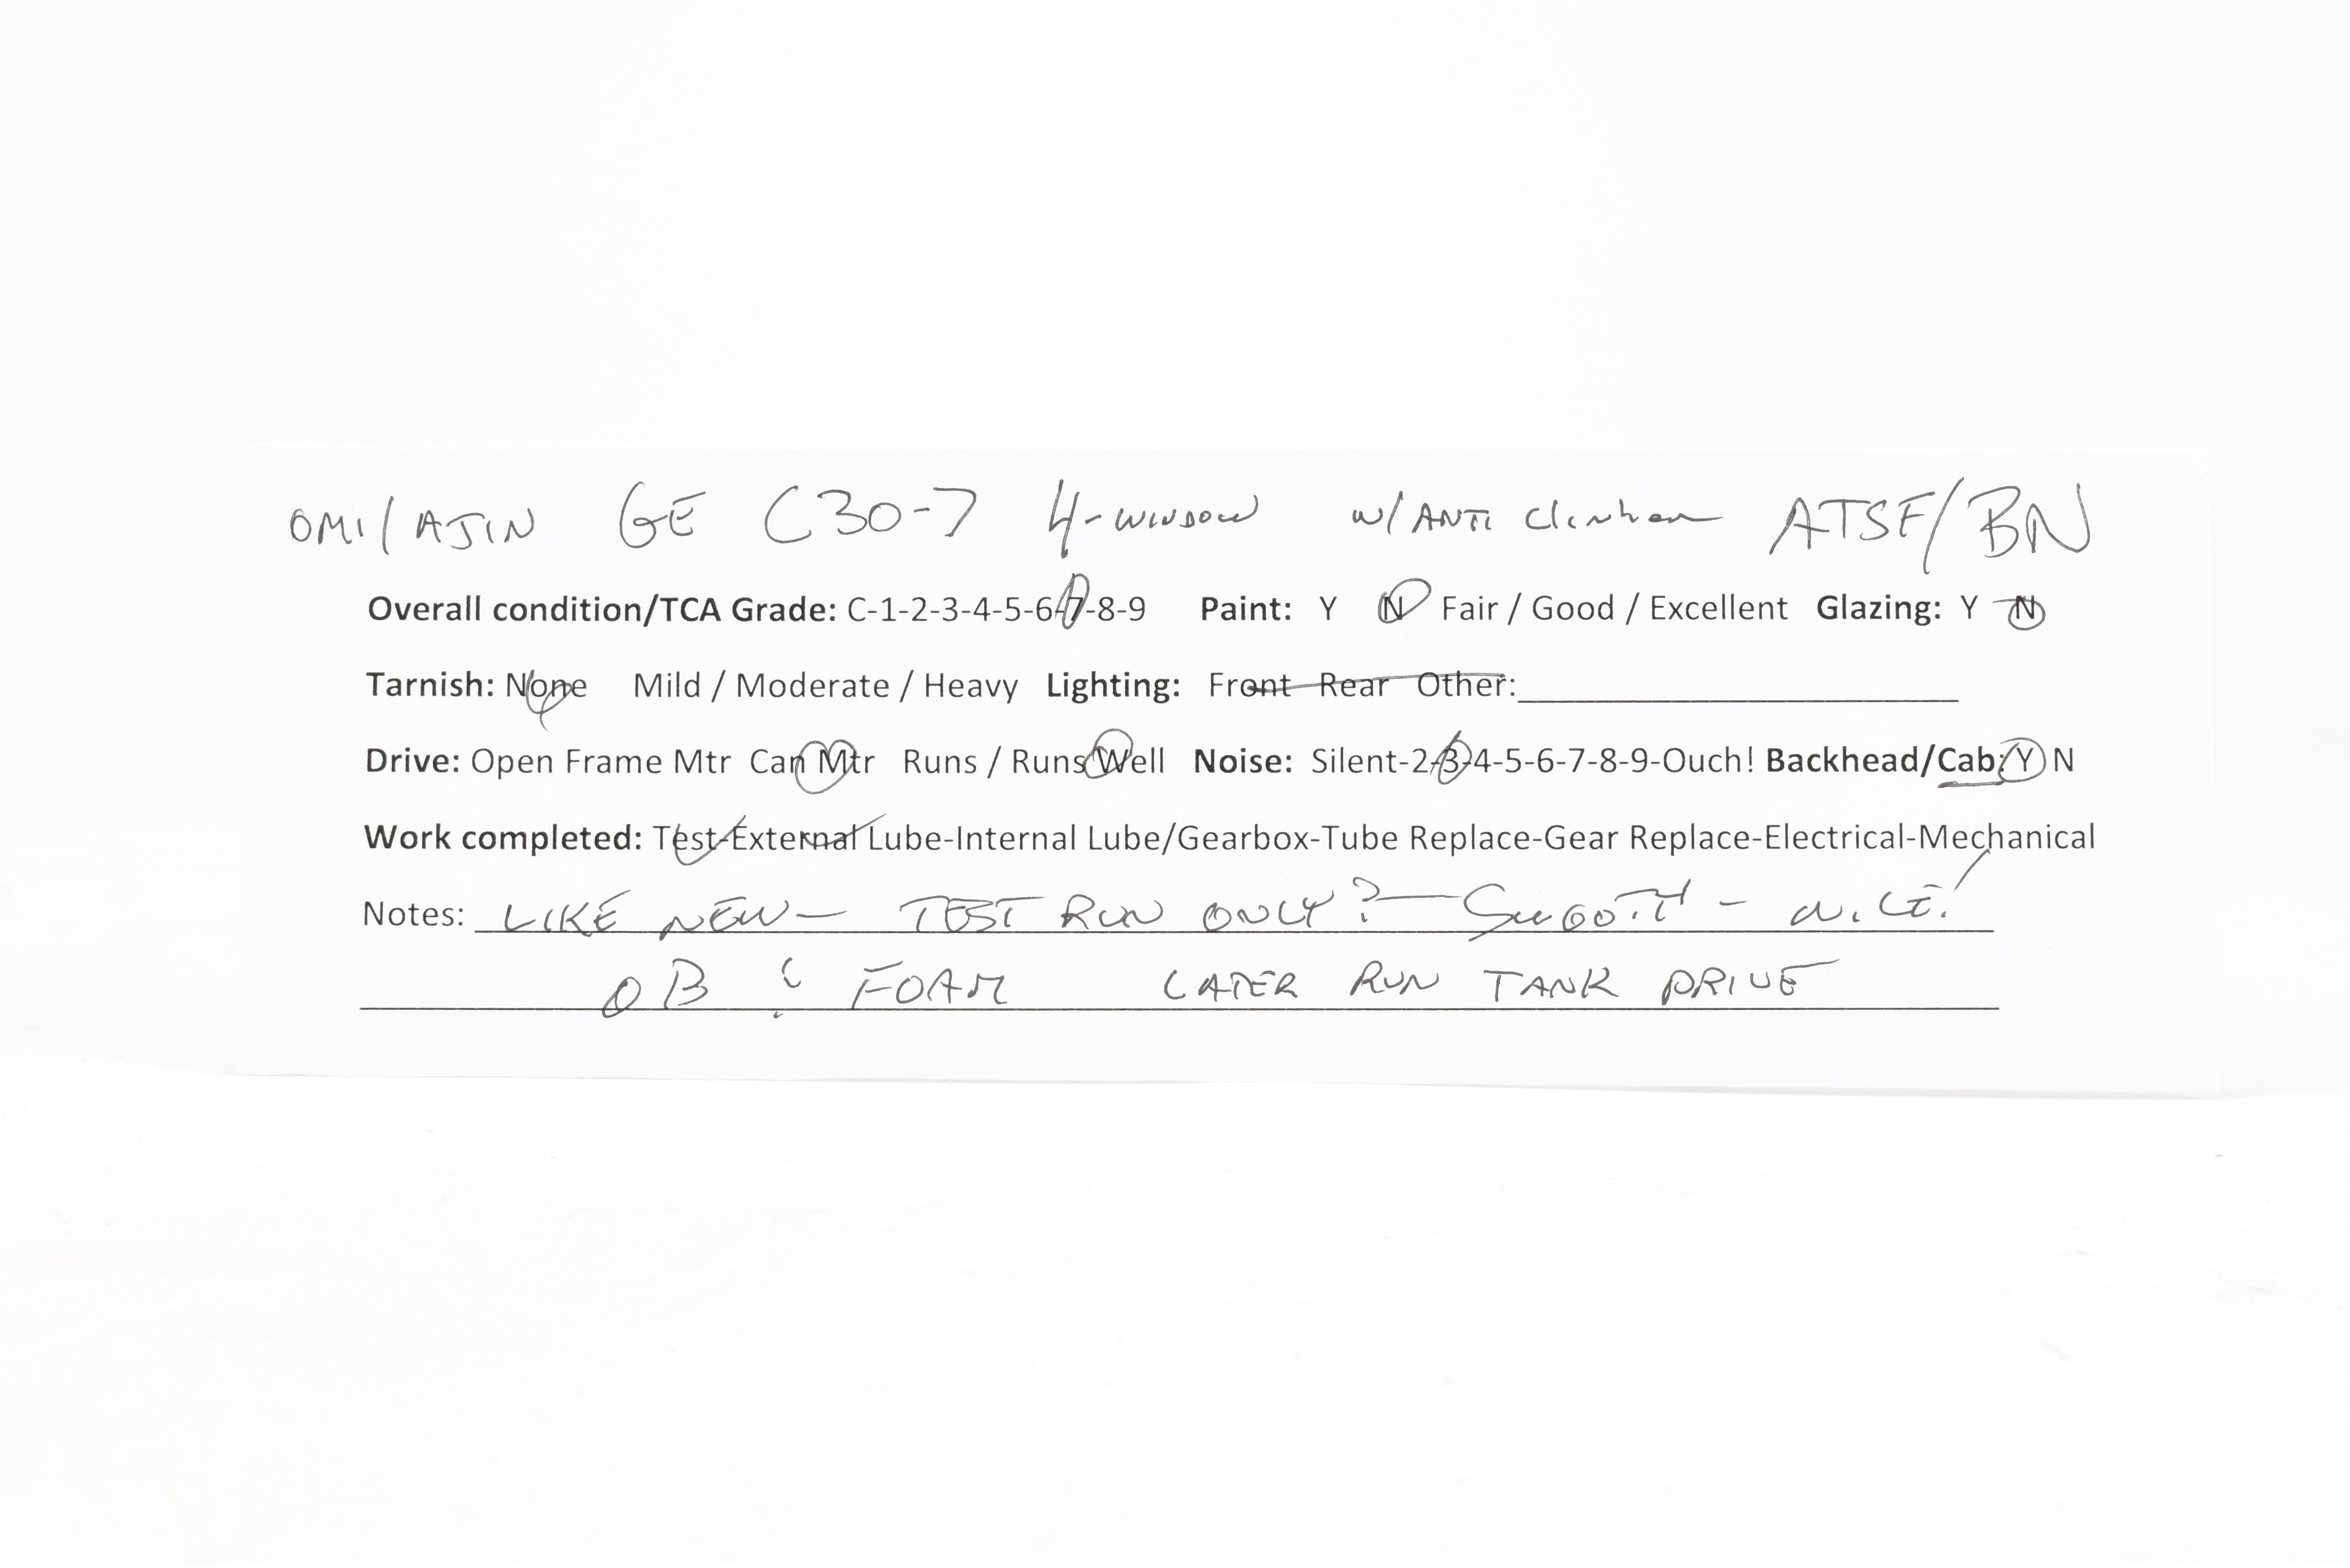 OMI/AJIN GE C30-7 4-WINDOW w/ANTI Climber ATSF/BN
Overall condition/TCA Grade: C-1-2-3-4-5-6-7-8-9 Paint: Y N Fair / Good / Excellent Glazing: Y N
Tarnish: None Mild / Moderate / Heavy Lighting: Front Rear Other:
Drive: Open Frame Mtr Can Mtr Runs / Runs Well Noise: Silent-2-3-4-5-6-7-8-9-Ouch! Backhead/Cab: Y N
Work completed: Test-External Lube-Internal Lube/Gearbox-Tube Replace-Gear Replace-Electrical-Mechanical
Notes: LIKE NEW - TEST RUN ONLY? - SMOOTH - NICE!
OB & FOAM LATER RUN TANK DRIVE